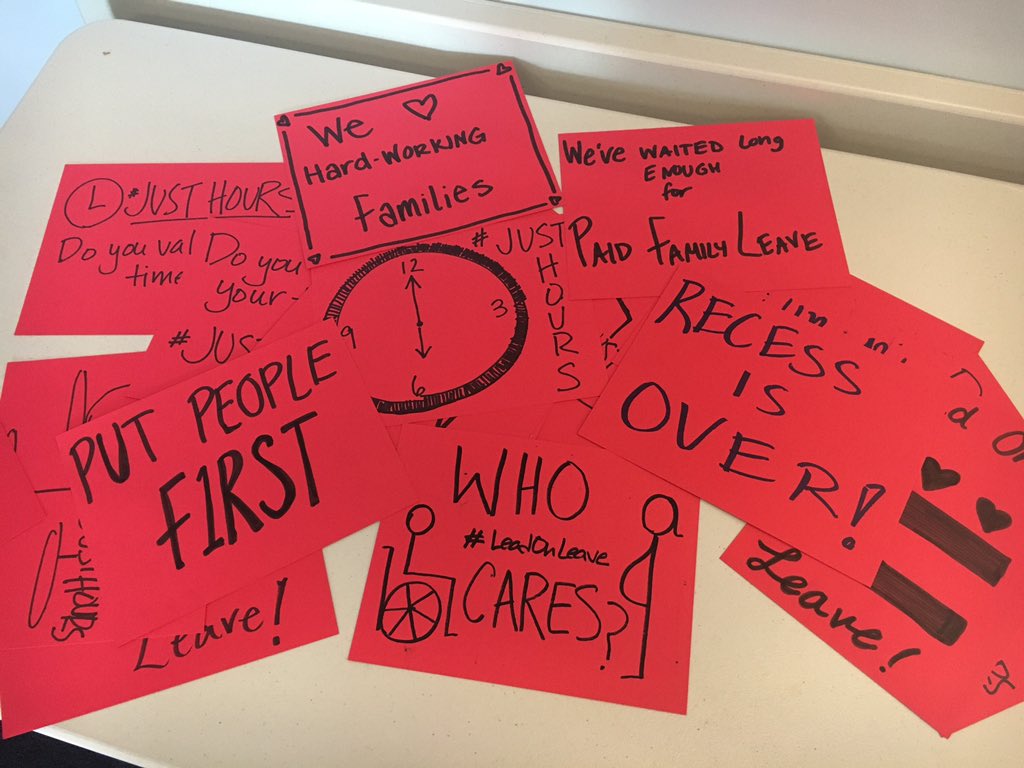 We ♡
HARD-WORKING
Families
We've WAITED Long
ENOUGH
for
PAID FAMILY LEAVE
#JUST HOURS
Do you val
time
Do you
your
#JUST
HOURS
12
3
6
9
#JUS
PUT PEOPLE
FIRST
RECESS
IS
OVER!
WHO
#LeadOnLeave
CARES?
Leave!
Leave!